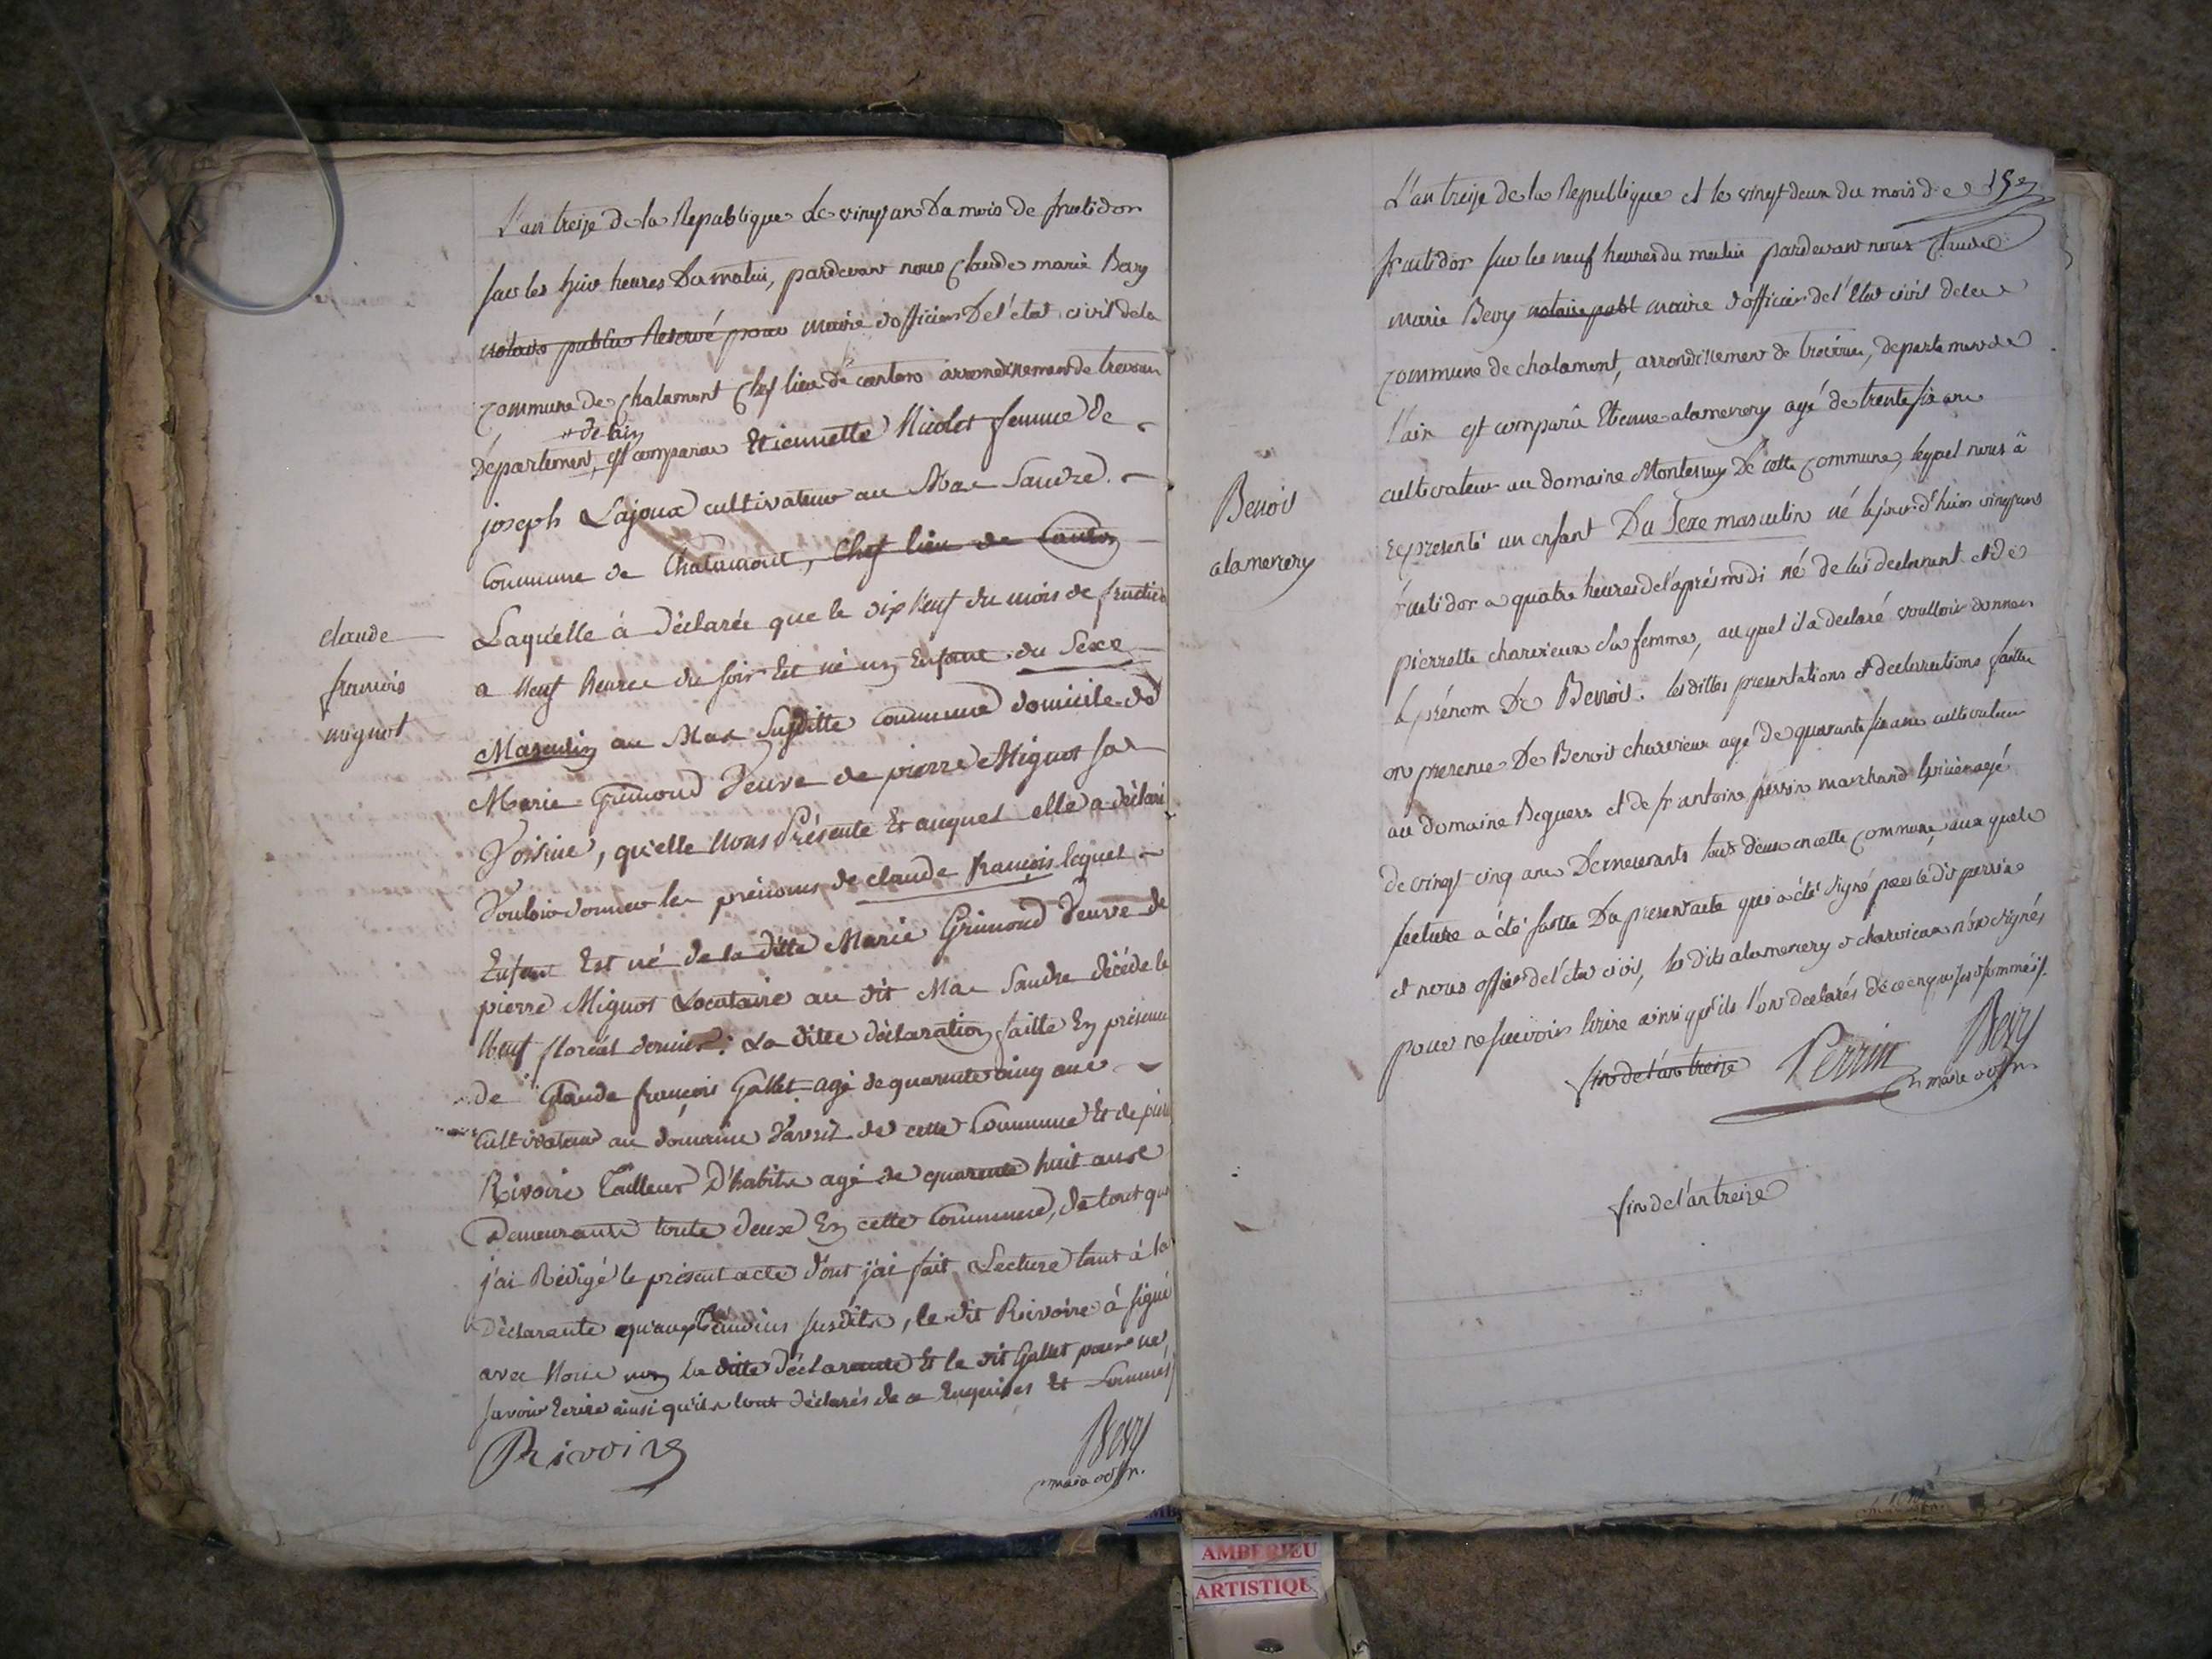 L'an treize de la Republique Le vingt un Du mois de fructidor
sur les huit heures Du matin, pardevant nous Claude marie Bevy
notaire public Reservé pour maire & officier De l'état civil de la
Commune de Chalamont Chef lieu de canton arrondissement de trevoux
+ de l'ain
Département, est comparue Etiennette Nicolet femme de
joseph Lajoux cultivateur au Mas Saudre.
Commune de Chalamont, Chef lieu de Canton
claude
françois
mignot
Laquelle à déclarée que le dix Neuf du mois de fructidor
a Neuf heures du soir Est né un Enfant du Sexe
Masculin au Mas Susditte commune domicile de
Marie Grimond Veuve de pierre Mignot sa
Voisine, qu'elle Nous Présente Et auquel elle a déclaré
Vouloir donner les prénoms de claude françois lequel
Enfant Est né de la ditte Marie Grimond Veuve de
pierre Mignot Locataire au dit Mas Saudre décédé le
Neuf floréal dernier. La ditte déclaration faitte En présence
de Claude françois Gallet agé de quarente cinq ans
Cultivateur au domaine de cette Commune Et de pierre
Rivoire Tailleur D'habits agé de quarente huit ans
Demeurants touts deux En cette Commune, de tout quoi
j'ai Rédigé le présent acte dont j'ai fait Lecture tant à la
Déclarante qu'aux témoins susdits, le dit Rivoire à signé
avec Nous non la ditte déclarante Et le dit Gallet pour ne
savoir Ecrire ainsi qu'ils l'ont déclarés de ce Enquises Et Sommés
Rivoire
Bevy
maire & offr.
L'an treize de la Republique et le vingt deux du mois de
fructidor sur les neuf heures du matin pardevant nous Claude
marie Bevy notaire publ maire & officier de l'Etat civil de la
commune de chalamont, arrondissement de trévoux, departement de
l'ain est comparu Etienne alamercery agé de trente six ans
Benoit
alamercery
cultivateur au domaine Montessuy De cette commune, lequel nous à
représenté un enfant Du Sexe masculin né le jour d'hier vingt un
fructidor a quatre heures de l'après midi né de lui declarant et de
pierrette charvieux sa femme, auquel il a declaré voulloir donner
le prénom De Benoit. les dittes presentations et declarations faittes
en presence De Benoit charvieux agé de quarante six ans cultivateur
au domaine Beguers et de fr antoine perrin marchand épicier agé
de vingt cinq ans Demeurants tous deux en cette commune, aux quels
lecture a été faitte Du present acte qui a été signé par le dit perrin
et nous offier de l'état civil, les dits alamercery & charvieux n'ont signés
pour ne sçavoir écrire ainsi qu'ils l'ont declarés de ce enquis & sommés.
fin de l'an treize
Perrin
Bevy
maire & offr.
fin de l'an treize
AMBERIEU
ARTISTIQUE